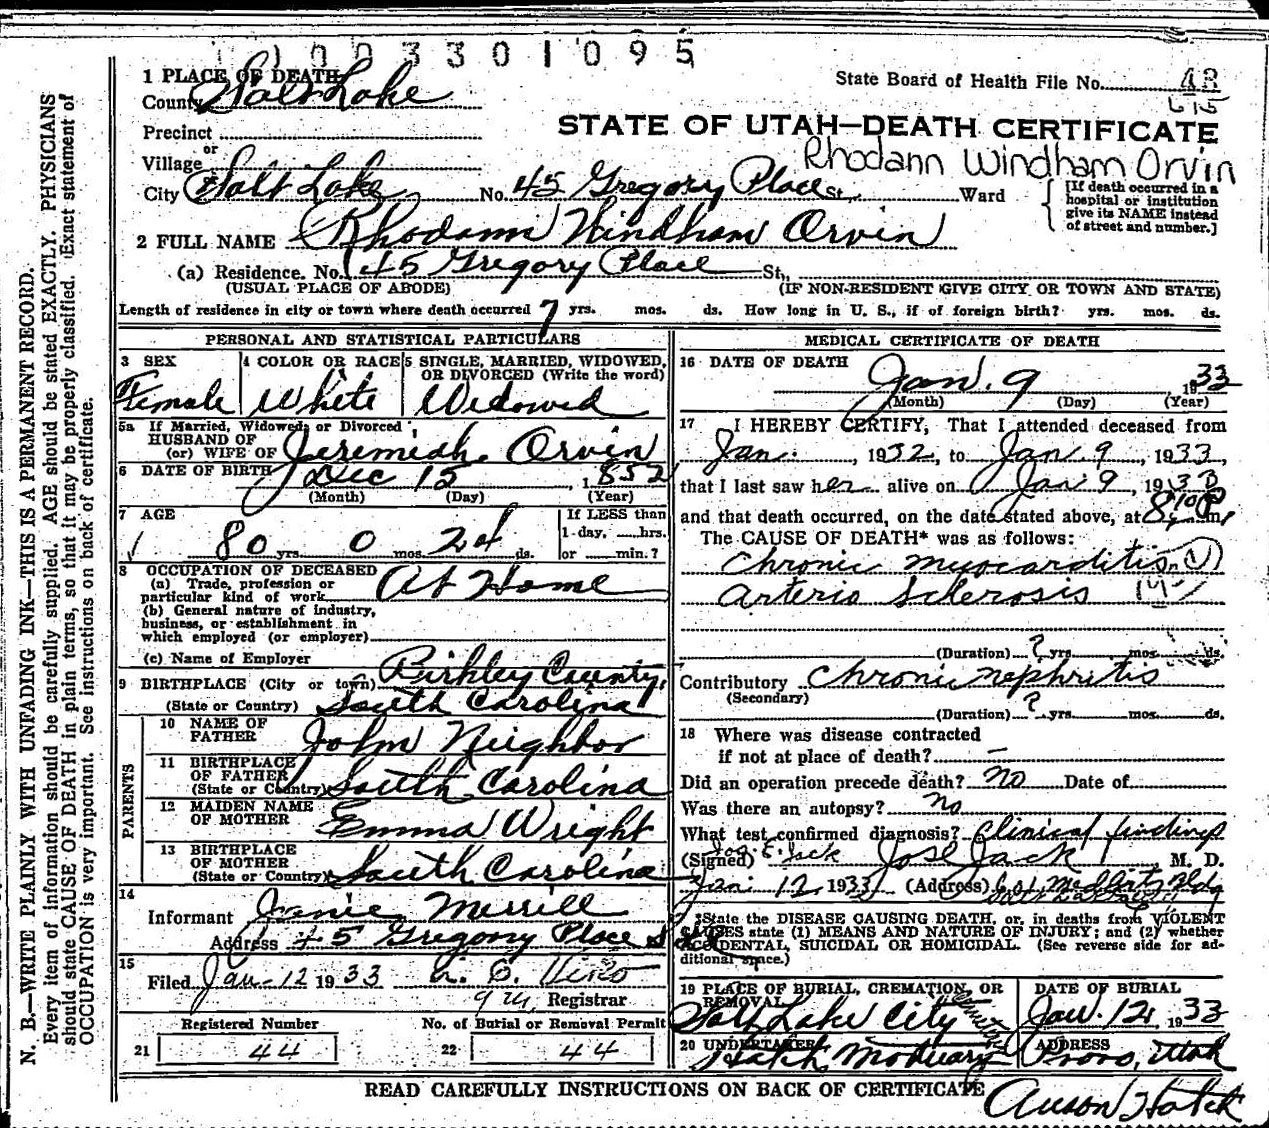 1003301095
1 PLACE OF DEATH
County Salt Lake
State Board of Health File No. 48
615
Precinct
STATE OF UTAH—DEATH CERTIFICATE
or
Village
Rhodann Windham Orvin
City Salt Lake No. 45 Gregory Place St., Ward
[If death occurred in a
hospital or institution
give its NAME instead
of street and number.]
2 FULL NAME Rhodann Windham Orvin
(a) Residence. No. 45 Gregory Place St.,
(USUAL PLACE OF ABODE) (IF NON-RESIDENT GIVE CITY OR TOWN AND STATE)
Length of residence in city or town where death occurred 7 yrs. mos. ds. How long in U. S., if of foreign birth? yrs. mos. ds.
PERSONAL AND STATISTICAL PARTICULARS
3 SEX
Female
4 COLOR OR RACE
White
5 SINGLE, MARRIED, WIDOWED,
OR DIVORCED (Write the word)
Widowed
5a If Married, Widowed, or Divorced
HUSBAND OF
(or) WIFE OF Jeremiah Orvin
6 DATE OF BIRTH Dec 15, 1852
(Month) (Day) (Year)
7 AGE
80 yrs. 0 mos. 24 ds.
If LESS than
1 day, hrs.
or min.?
8 OCCUPATION OF DECEASED
(a) Trade, profession or
particular kind of work At Home
(b) General nature of industry,
business, or establishment in
which employed (or employer)
(c) Name of Employer
9 BIRTHPLACE (City or town) Birkley County,
(State or Country) South Carolina
PARENTS
10 NAME OF
FATHER John Neighbor
11 BIRTHPLACE
OF FATHER
(State or Country) South Carolina
12 MAIDEN NAME
OF MOTHER Emma Wright
13 BIRTHPLACE
OF MOTHER
(State or Country) South Carolina
14
Informant Janie Merrill
Address 45 Gregory Place
15
Filed Jan 12 1933
Registrar
Registered Number
21 44
No. of Burial or Removal Permit
22 44
MEDICAL CERTIFICATE OF DEATH
16 DATE OF DEATH
Jan. 9 1933
(Month) (Day) (Year)
17 I HEREBY CERTIFY, That I attended deceased from
Jan. , 1932, to Jan. 9, 1933,
that I last saw her alive on Jan 9, 1933
and that death occurred, on the date stated above, at 8:10 P m.
The CAUSE OF DEATH* was as follows:
Chronic myocarditis
Arterio Sclerosis
(Duration) ? yrs. mos. ds.
Contributory Chronic nephritis
(Secondary)
(Duration) ? yrs. mos. ds.
18 Where was disease contracted
if not at place of death? —
Did an operation precede death? No Date of
Was there an autopsy? No
What test confirmed diagnosis? Clinical findings
(Signed) Jos E. Jack Jos E Jack, M. D.
Jan 12 1933 (Address) Bldg
*State the DISEASE CAUSING DEATH, or, in deaths from VIOLENT
CAUSES state (1) MEANS AND NATURE OF INJURY; and (2) whether
ACCIDENTAL, SUICIDAL OR HOMICIDAL. (See reverse side for ad-
ditional space.)
19 PLACE OF BURIAL, CREMATION, OR
REMOVAL
Salt Lake City
DATE OF BURIAL
Jan. 12, 1933
20 UNDERTAKER
Hatch Mortuary
ADDRESS
Provo, Utah
READ CAREFULLY INSTRUCTIONS ON BACK OF CERTIFICATE
Hatch
N. B.—WRITE PLAINLY WITH UNFADING INK—THIS IS A PERMANENT RECORD.
Every item of information should be carefully supplied. AGE should be stated EXACTLY. PHYSICIANS
should state CAUSE OF DEATH in plain terms, so that it may be properly classified. Exact statement of
OCCUPATION is very important. See instructions on back of certificate.